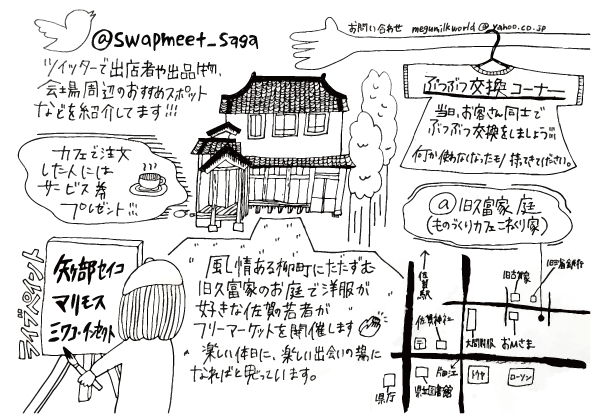 お問い合わせ megumilkworld@yahoo.co.jp
@swapmeet_saga
ツイッターで出店者や出品物、
会場周辺のおすすめスポット
などを紹介してます!!!
ぶつぶつ交換コーナー
当日、お客さん同士で
ぶつぶつ交換をしましょう!!!
何か使わなくなったモノ持ってきてください。
カフェで注文
した人には
サービス券
プレゼント!!!
@旧久富家 庭
(ものづくりカフェこねくり家)
ライブペイント
矢ヶ部セイコ
マリモス
ミワコ・インセクト
風情ある柳町にただずむ
旧久富家のお庭で洋服が
好きな佐賀の若者が
フリーマーケットを開催します
楽しい休日に、楽しい出会いの場に
なればと思っています。
↑佐賀駅
旧古賀家
旧古賀銀行
佐賀神社
〒
大閤閣
おひさま
県庁
県立図書館
トヨタ
ローソン